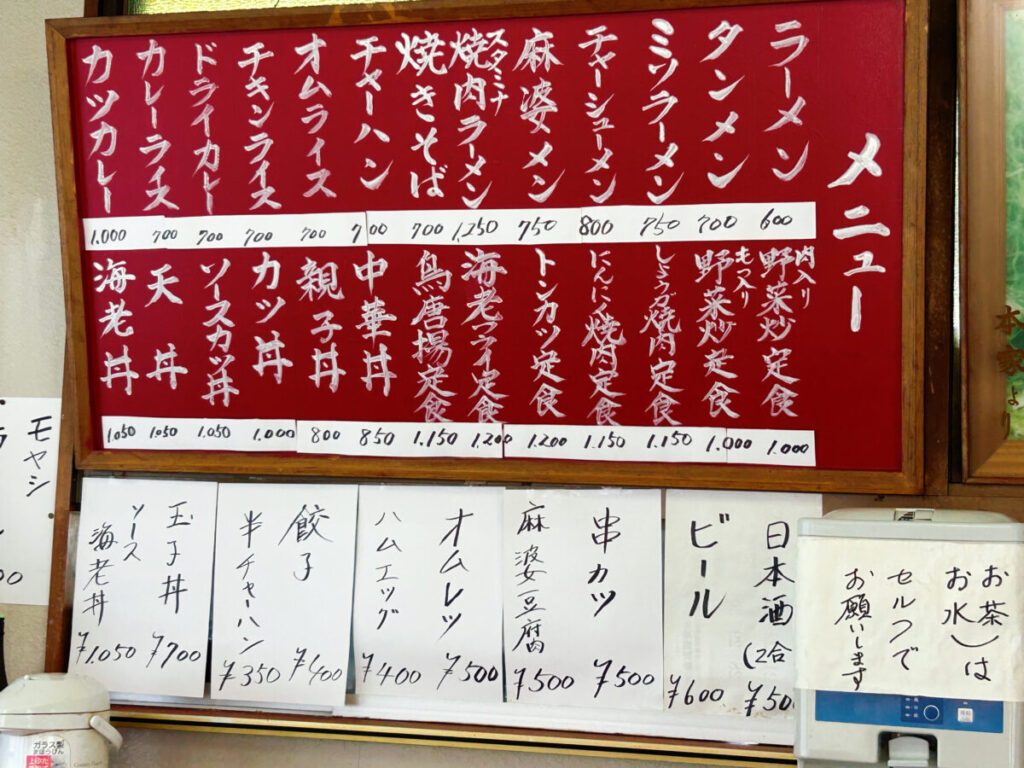 メニュー
ラーメン
600
タンメン
700
ミソラーメン
750
チャーシューメン
800
麻婆メン
750
スタミナ
焼肉ラーメン
1,250
焼きそば
700
チャーハン
700
オムライス
700
チキンライス
700
ドライカレー
700
カレーライス
700
カツカレー
1.000
肉入り
野菜炒定食
1.000
もつ入り
野菜炒定食
1.000
しょうが焼肉定食
1.150
にんにく焼肉定食
1.150
トンカツ定食
1.200
海老フライ定食
1.200
鳥唐揚定食
1.150
中華丼
850
親子丼
800
カツ丼
1.000
ソースカツ丼
1.050
天丼
1.050
海老丼
1.050
日本酒
(2合
¥50
ビール
¥600
串カツ
¥500
麻婆豆腐
¥500
オムレツ
¥500
ハムエッグ
¥400
餃子
¥400
半チャーハン
¥350
玉子丼
¥700
ソース
海老丼
¥1.050
モヤシ
お茶)は
お水)
セルフで
お願いします
本家より
ガラス製
まほうびん